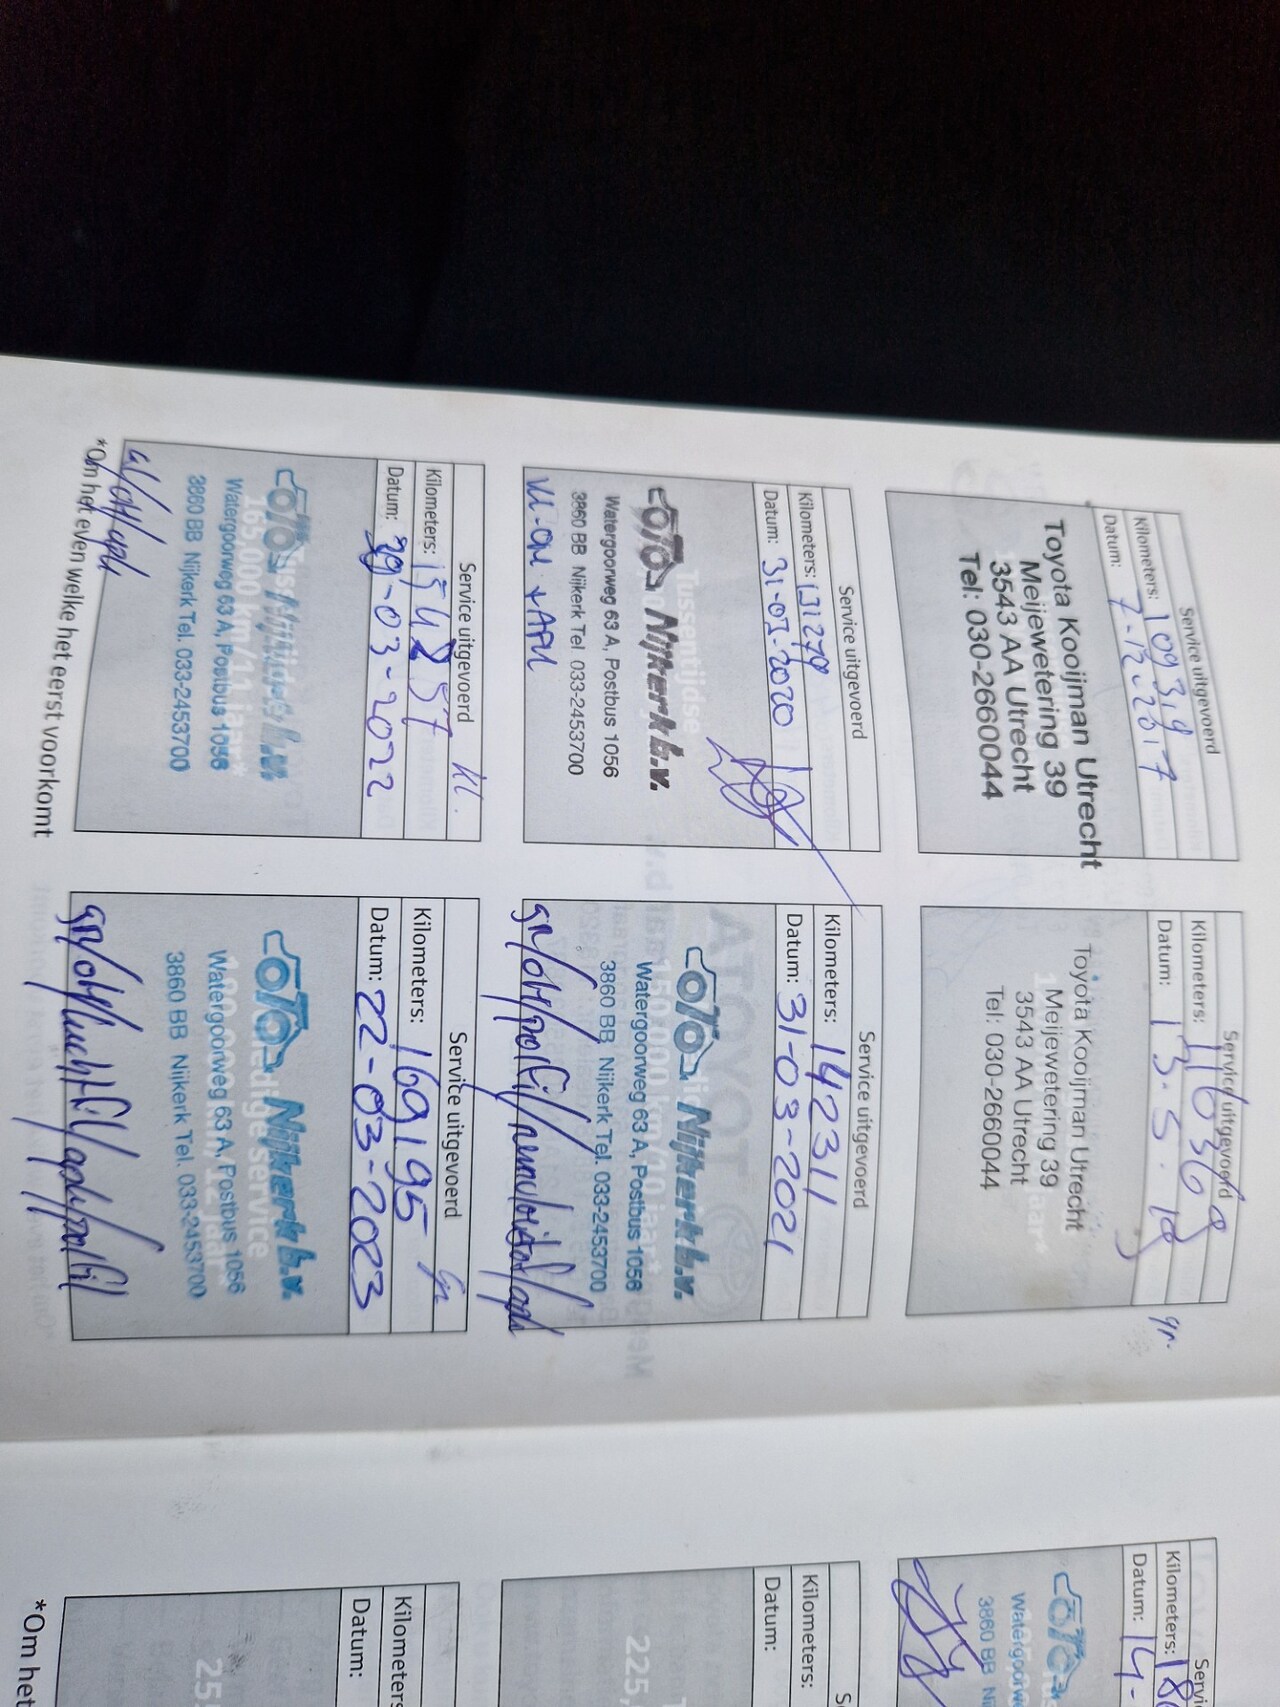 Service uitgevoerd
Kilometers: 109319
Datum: 7-12-2017
Toyota Kooijman Utrecht
Meijewetering 39
3543 AA Utrecht
Tel: 030-2660044
Service uitgevoerd
Kilometers:
Datum: 13.5.19
gr.
Toyota Kooijman Utrecht
Meijewetering 39
3543 AA Utrecht
Tel: 030-2660044
Service uitgevoerd
Kilometers: 131279
Datum: 31-03-2020
Tussentijdse
Nijkerk b.v.
Watergoorweg 63 A, Postbus 1056
3860 BB Nijkerk Tel. 033-2453700
Service uitgevoerd
Kilometers: 142311
Datum: 31-03-2021
150.000 km/10 jaar*
Nijkerk b.v.
Watergoorweg 63 A, Postbus 1056
3860 BB Nijkerk Tel. 033-2453700
Service uitgevoerd Kl.
Kilometers:
Datum: -03-2022
165.000 km/11 jaar*
Nijkerk b.v.
Watergoorweg 63 A, Postbus 1056
3860 BB Nijkerk Tel. 033-2453700
Service uitgevoerd
Kilometers: 169195
Datum: 22-03-2023
Nijkerk b.v.
Watergoorweg 63 A, Postbus 1056
3860 BB Nijkerk Tel. 033-2453700
*Om het even welke het eerst voorkomt
Kilometers:
Datum: 14-
3860 BB
Kilometers:
Datum:
225.
Kilometers
Datum:
*Om het